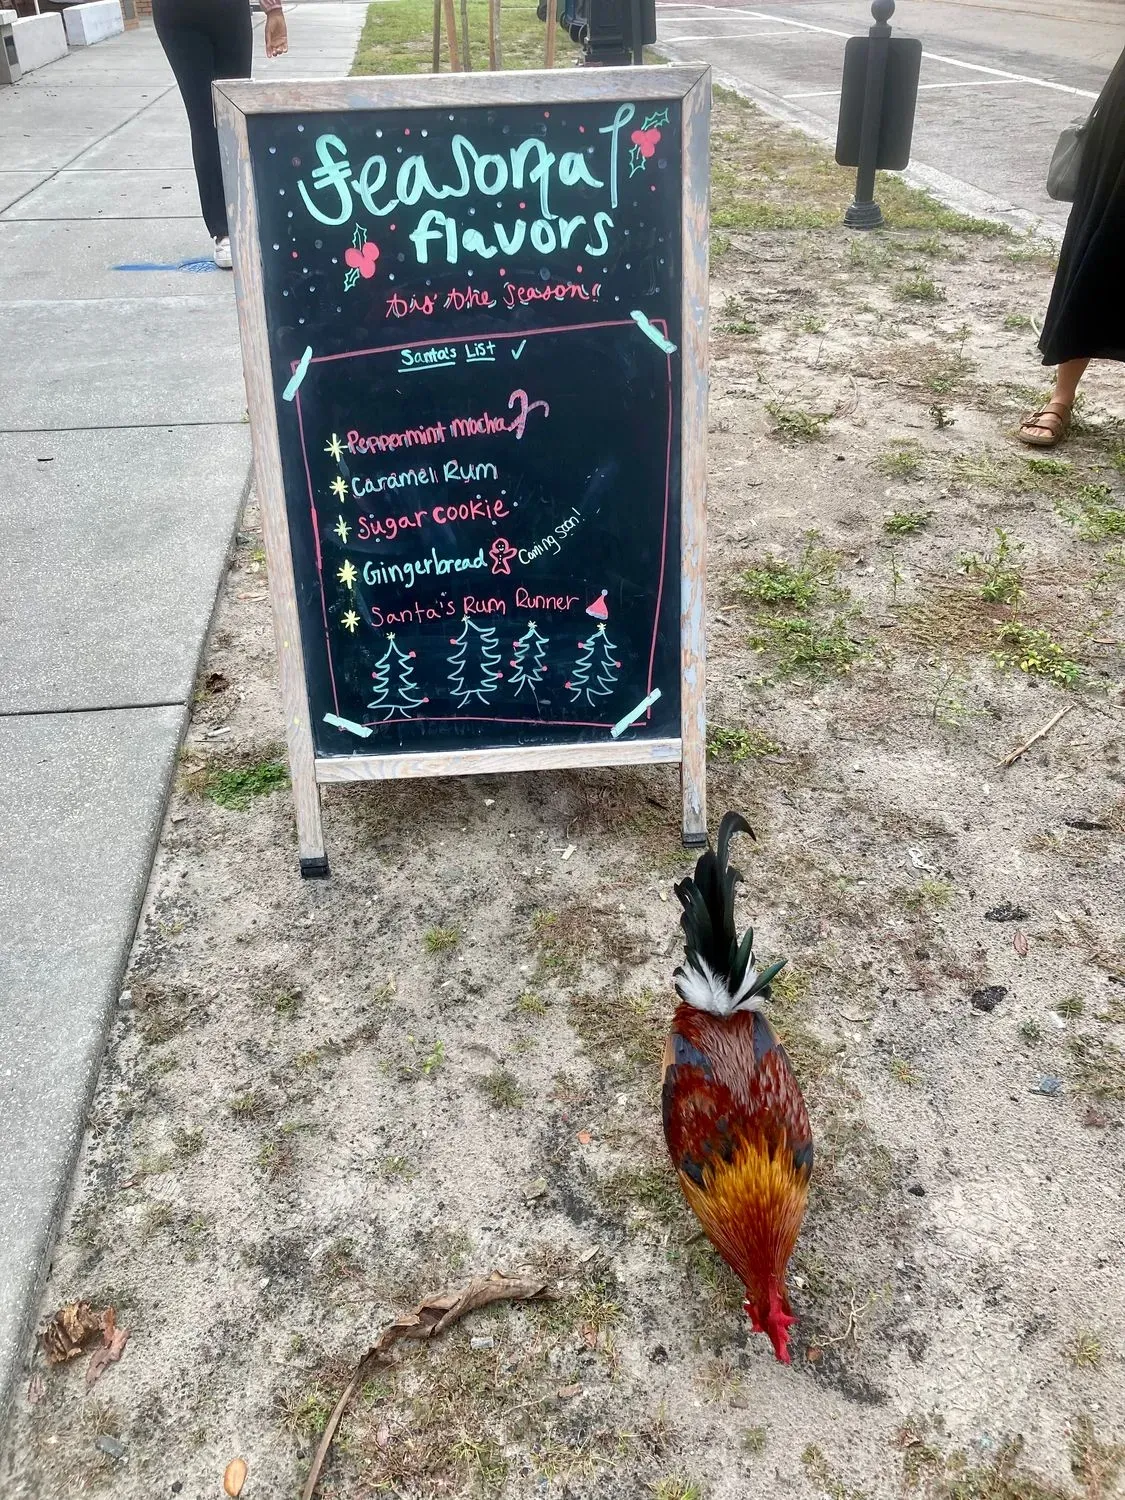 Seasonal
flavors
tis' the season!!
Santa's List ✓
Peppermint Mocha
Caramel Rum
Sugar cookie
Gingerbread Coming soon!
Santa's Rum Runner